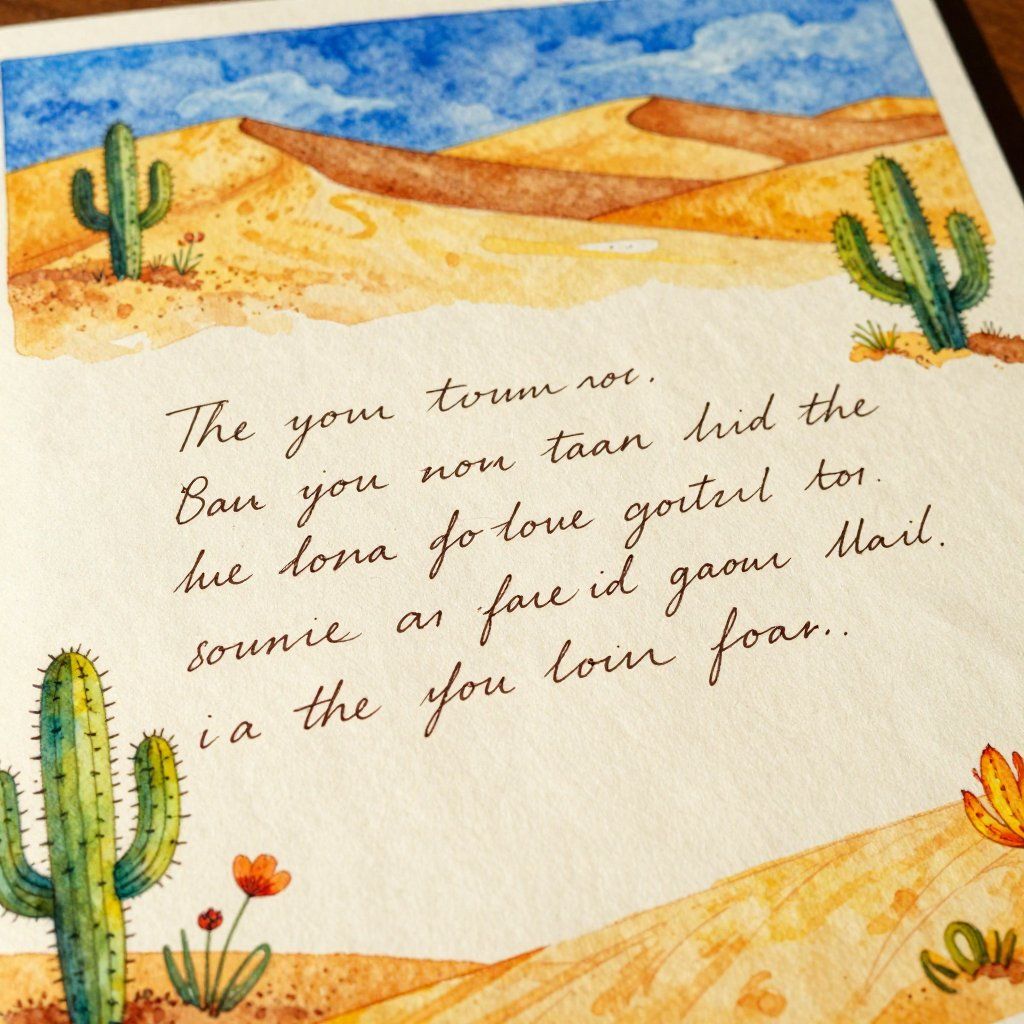 The your toum roc.
Bau you nou taan hid the
hue lona fo loue gortzil tor.
sounie as faue id gaour Mail.
i a the you loin foar..